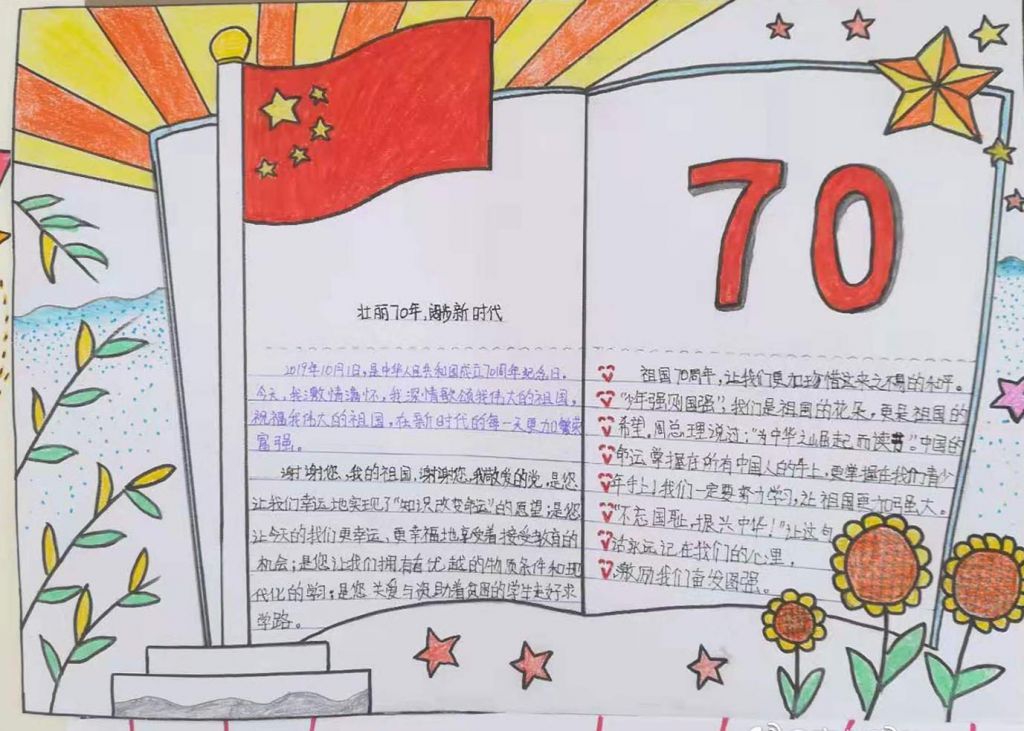 70
壮丽70年,阔步新时代
2019年10月1日,是中华人民共和国成立70周年纪念日。
今天,我激情满怀,我深情歌颂我伟大的祖国,
祝福我伟大的祖国,在新时代的每一天更加繁荣
富强。
谢谢您、我的祖国,谢谢您,我敬爱的党,是您
让我们幸运地实现了“知识改变命运”的愿望;是您
让今天的我们更幸运、更幸福地享受着接受教育的
机会;是您让我们拥有着优越的物质条件和现
代化的学习;是您关爱与资助着贫困的学生走好求
学路。
祖国70周年,让我们更加珍惜这来之不易的和平。
“少年强则国强”,我们是祖国的花朵,更是祖国的
希望。周总理说过:“为中华之崛起而读书。”中国的
命运掌握在所有中国人的手上,更掌握在我们青少
年手上!我们一定要努力学习,让祖国更加强大。
“不忘国耻,振兴中华!”让这句
话永远记在我们的心里,
激励我们奋发图强。